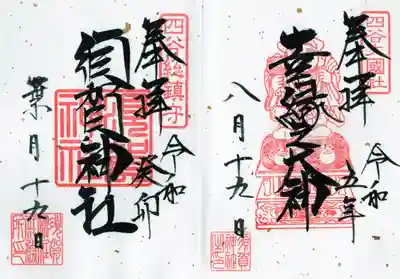 奉拝
四谷大國社
吉縁大神
令和五年
八月十九日
奉拝
四谷総鎮守
須賀神社
令和癸卯
葉月十九日